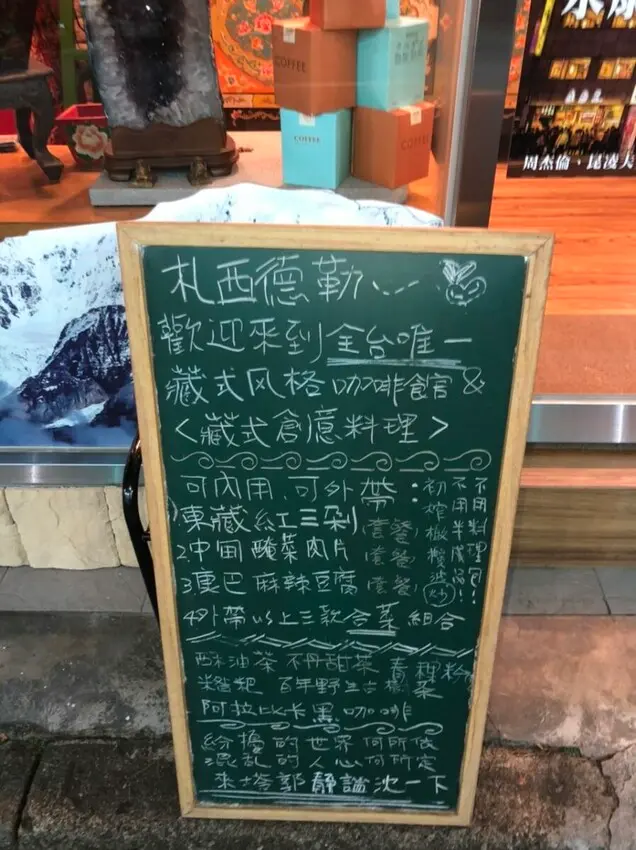 COFFEE
COFFEE
COFFEE
周杰倫、昆凌夫
札西德勒
歡迎來到全台唯一
藏式风格咖啡館&
<藏式創意料理>
可內用、可外帶：
1東藏紅三剁(套餐)
2.中甸醃菜肉片(套餐)
3.康巴麻辣豆腐(套餐)
4外帶以上三款合菜組合
不用料理包!!
不用半成品!!
初榨橄欖油炒
酥油茶 不丹甜菜
糌粑 百年野生古樹茶
阿拉比卡黑咖啡
紛擾的世界何所依
混亂的人心何所定
來塔郭靜謐沈一下